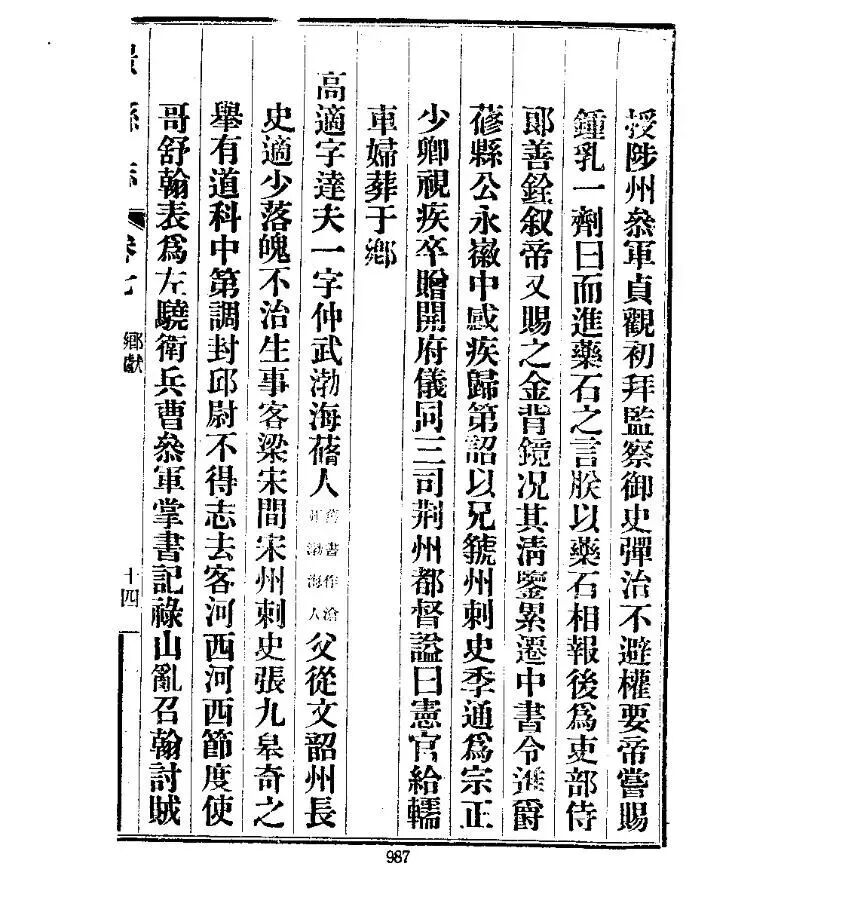 授陟州叅軍貞觀初拜監察御史彈治不避權要帝嘗賜
鍾乳一劑曰而進藥石之言朕以藥石相報後爲吏部侍
郎善銓叙帝又賜之金背鏡况其淸鑒累遷中書令進爵
蓚縣公永徽中感疾歸第詔以兄虢州刺史季通爲宗正
少卿視疾卒贈開府儀同三司荆州都督謚曰憲官給轜
車婦葬于鄕
高適字達夫一字仲武渤海蓚人
舊書作滄
州渤海人
父從文韶州長
史適少落魄不治生事客梁宋間宋州刺史張九臯奇之
舉有道科中第調封邱尉不得志去客河西河西節度使
哥舒翰表爲左驍衛兵曹叅軍掌書記祿山亂召翰討賊
縣志
卷七
鄕獻
十四
987